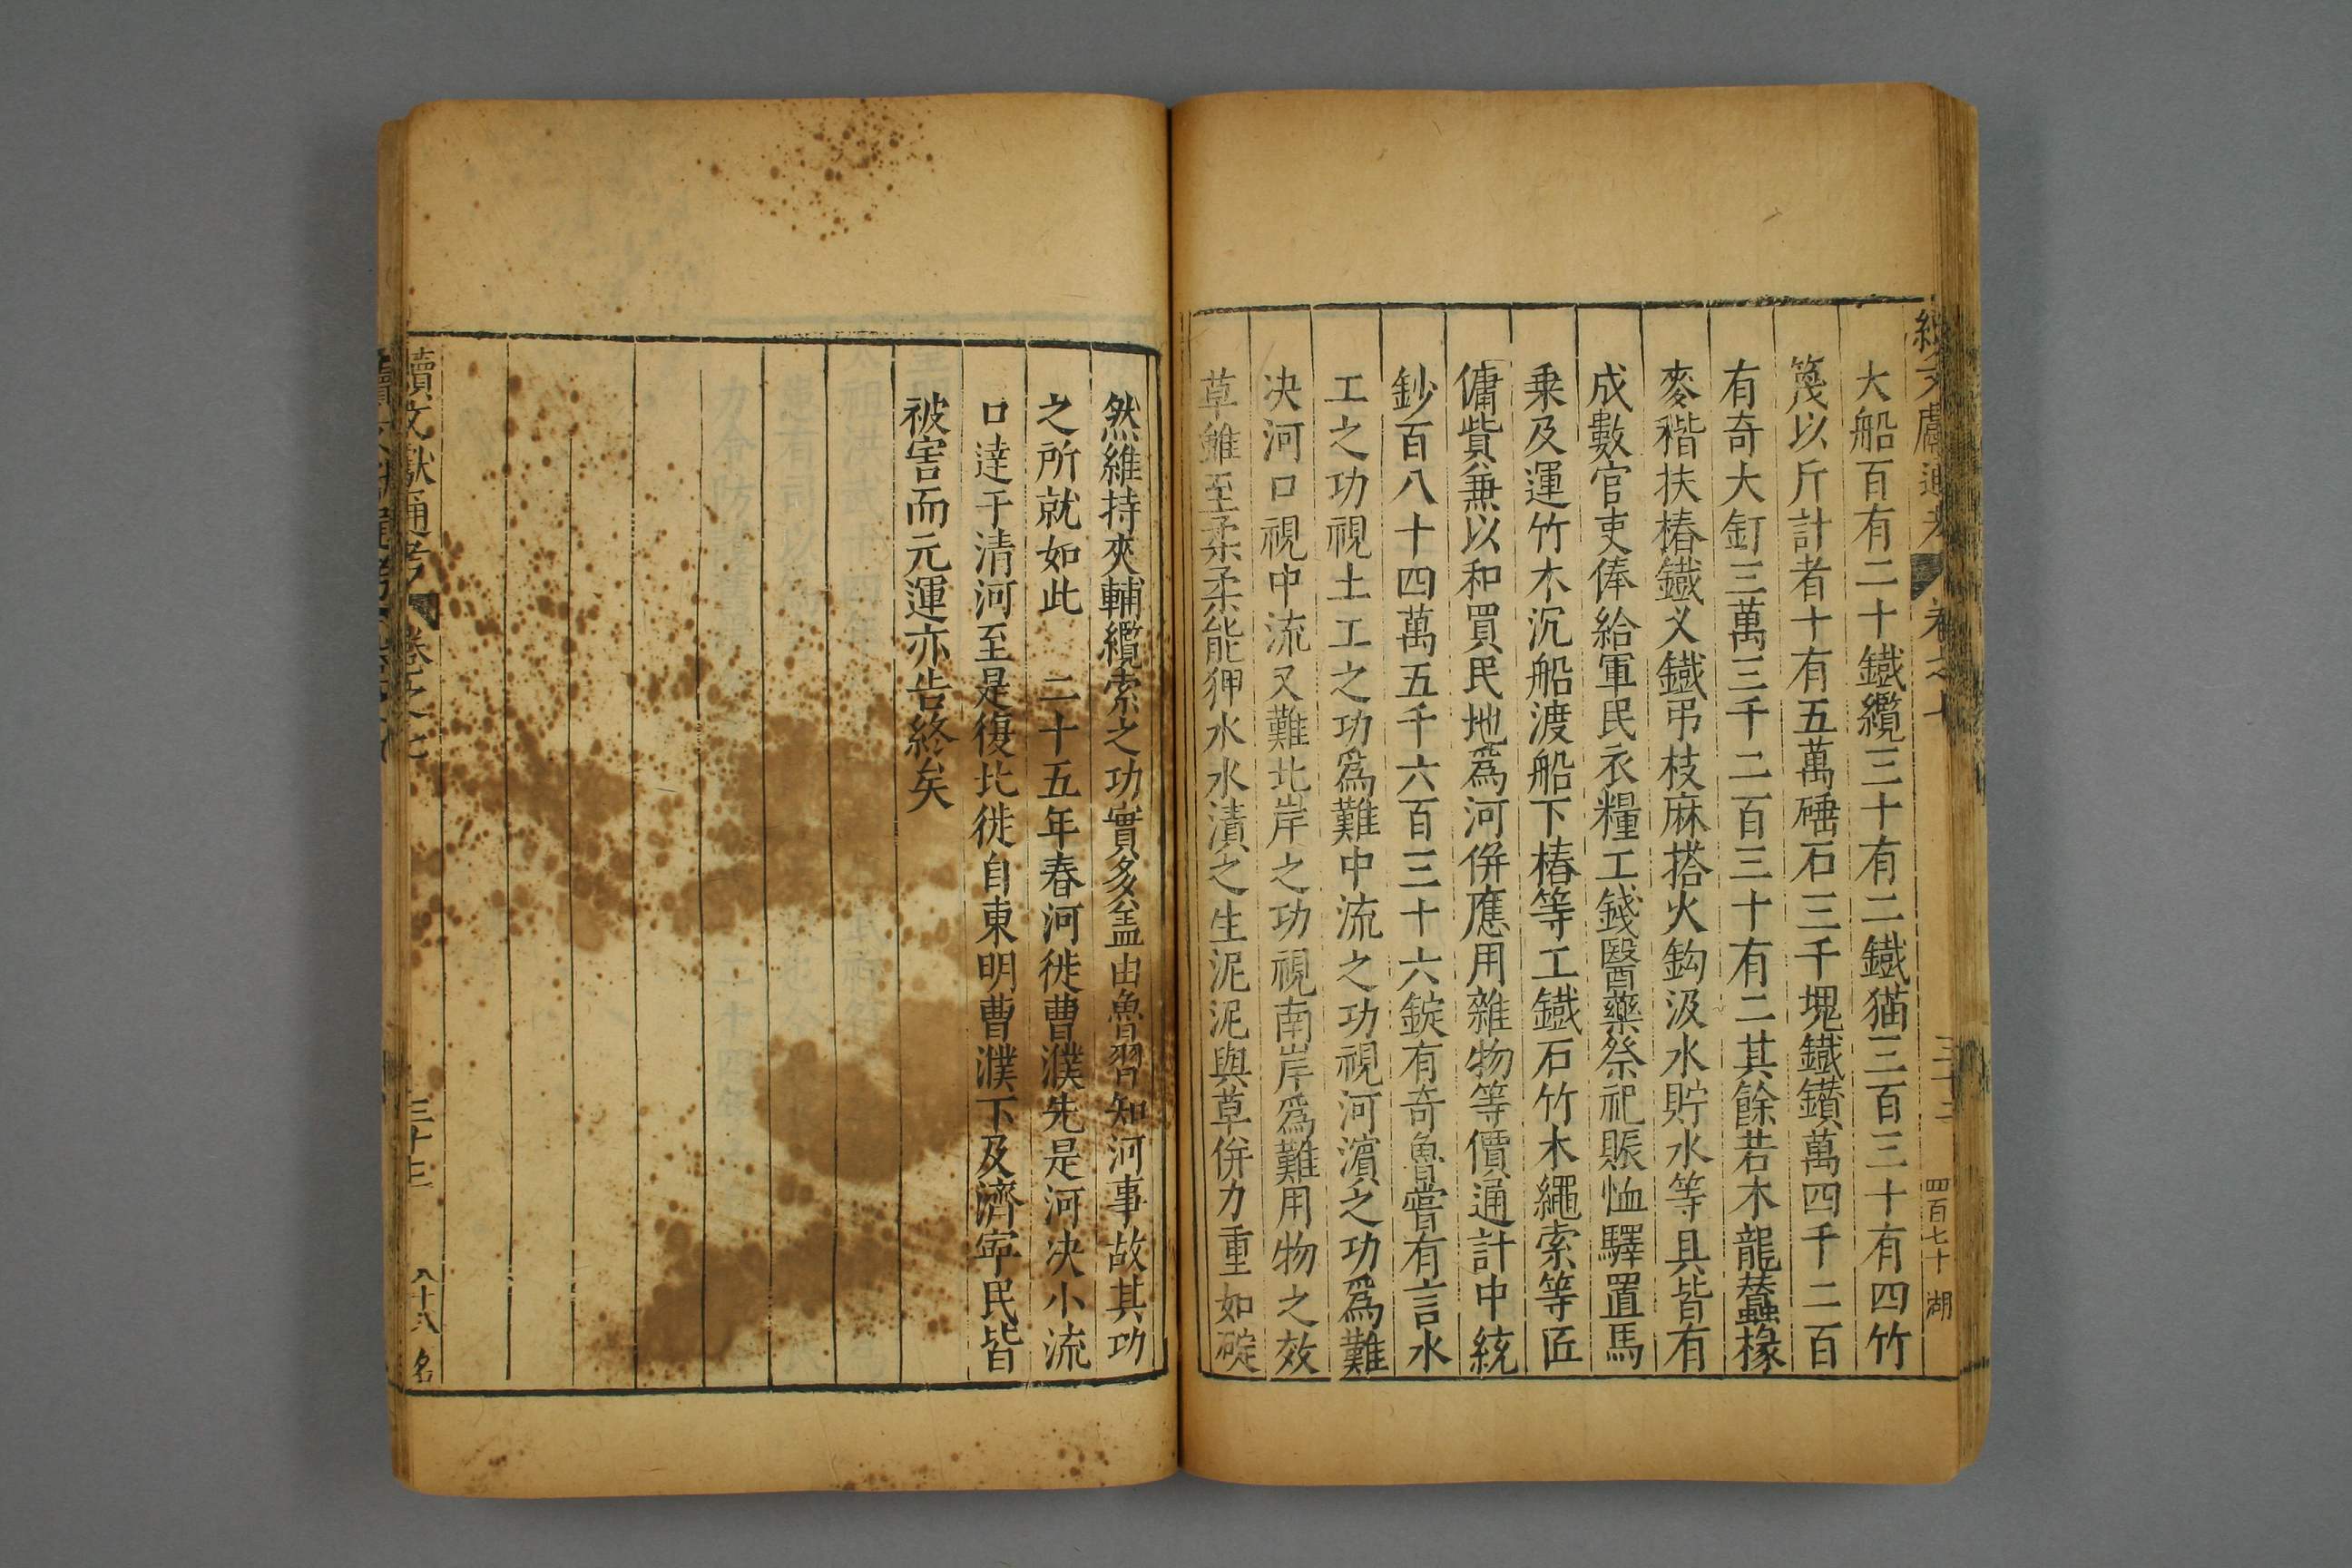 續文獻通考 卷之七 三十二 四百七十 湖
大船百有二十鐵纜三十有二鐵猫三百三十有四竹
篾以斤計者十有五萬硾石三千塊鐵鑽萬四千二百
有奇大釘三萬三千二百三十有二其餘若木龍蠶椽
麥稭扶樁鐵叉鐵弔枝麻搭火鈎汲水貯水等具皆有
成數官吏俸給軍民衣糧工錢醫藥祭祀賑恤驛置馬
乗及運竹木沉船渡船下樁等工鐵石竹木繩索等匠
傭貲兼以和買民地爲河併應用雜物等價通計中統
鈔百八十四萬五千六百三十六錠有奇魯嘗有言水
工之功視土工之功爲難中流之功視河濵之功爲難
决河口視中流又難北岸之功視南岸爲難用物之效
草雖至柔柔能狎水水漬之生泥泥與草併力重如碇
然維持夾輔纜索之功實多盖由魯習知河事故其功
之所就如此 二十五年春河徙曹濮先是河决小流
口達于清河至是復北徙自東明曹濮下及濟寧民皆
被害而元運亦告終矣
續文獻通考 卷之七 三十三 八十八 名